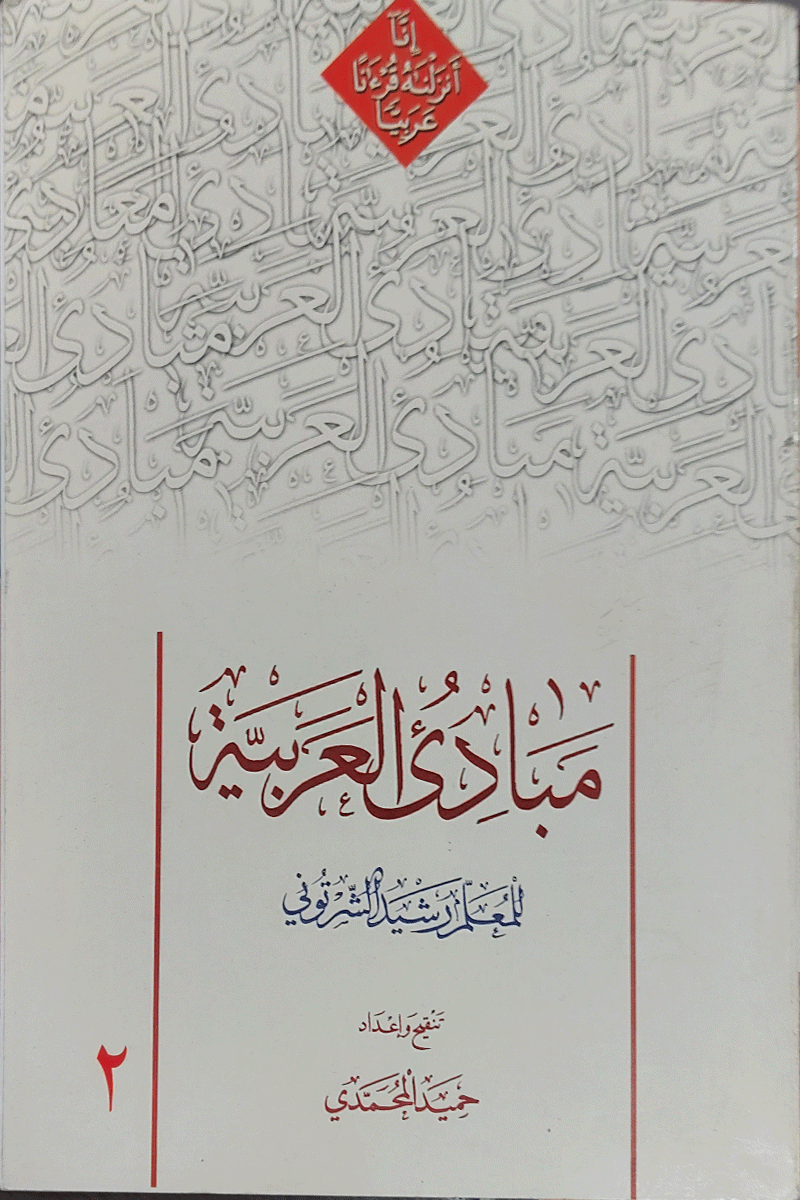 إِنَّا
أَنزَلْنَٰهُ قُرْءَٰنًا
عَرَبِيًّا
مَبَادِئُ الْعَرَبِيَّة
لِلْمُعَلِّم رَشيد الشَّرتُوني
تَنْقيح وَإعْدَاد
حَميد المُحَمَّدي
٢